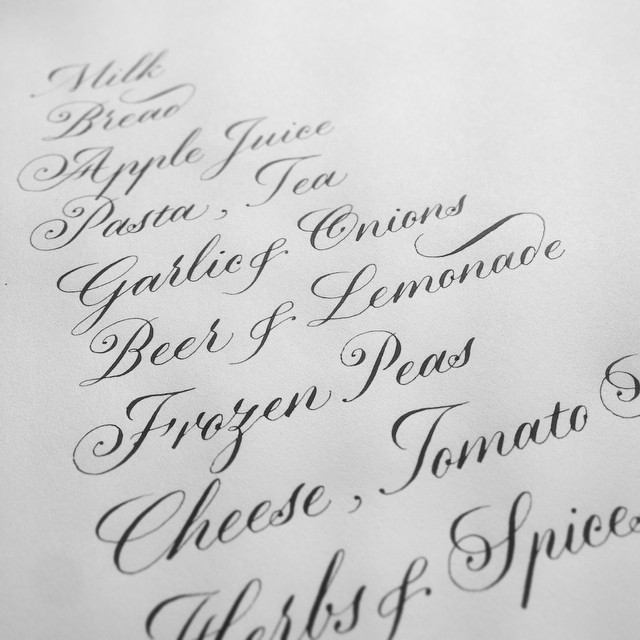 Milk
Bread
Apple Juice
Pasta, Tea
Garlic & Onions
Beer & Lemonade
Frozen Peas
Cheese, Tomato
Herbs & Spices